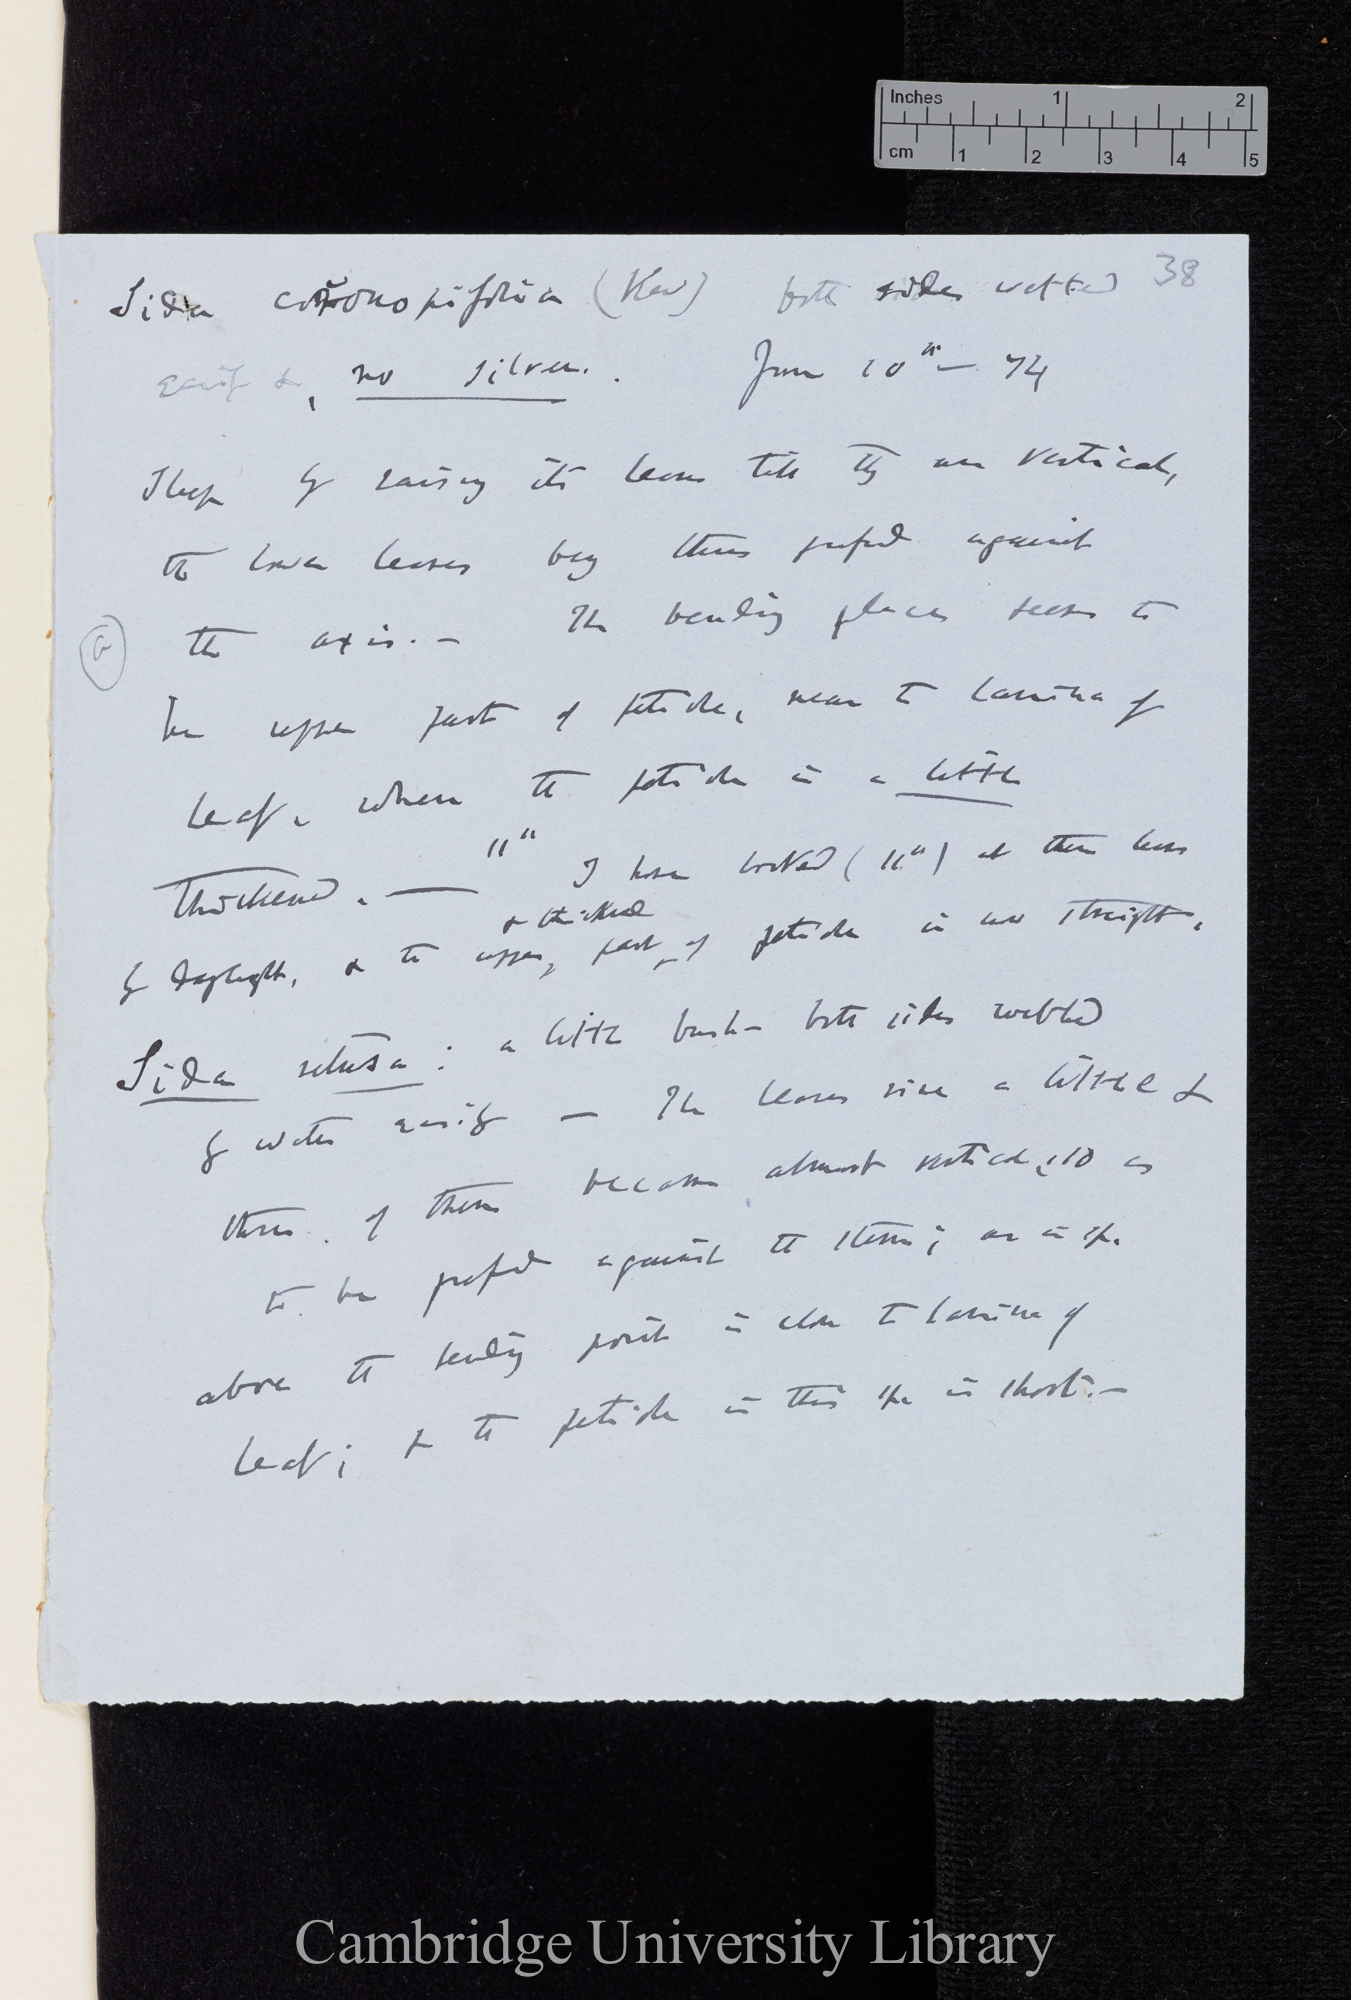 Inches 1 2
cm 1 2 3 4 5
38
Sida coronopifolia (Kew) both sides wetted
easily & no silver. June 10th — 74
Sleep by raising its leaves till they are vertical,
the lower leaves being thus pressed against
the axis. — The bending place seems to
be upper part of petiole, near to lamina of
leaf, where the petiole is a little
thickened. — 11th I have looked (11th) at these leaves
& thickened
by daylight, & the upper, part, of petiole is now straight.
Sida retusa: a little bush — both sides wetted
by water easily — The leaves rise a little &
three of them become almost vertical, so as
to be pressed against the stem; as in sp.
above the bending point is close to lamina of
leaf; & the petiole in this sp. is short. —
Cambridge University Library